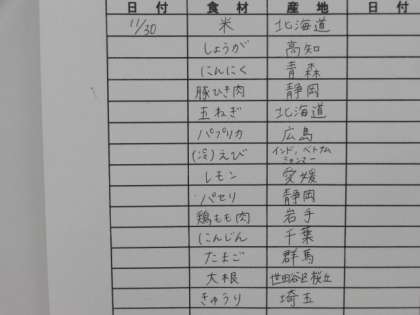 日付 食材 産地 日付
11/30 米 北海道
しょうが 高知
にんにく 青森
豚ひき肉 静岡
玉ねぎ 北海道
パプリカ 広島
(冷)えび インド、ベトナム
ミャンマー
レモン 愛媛
パセリ 静岡
鶏もも肉 岩手
にんじん 千葉
たまご 群馬
大根 世田谷区桜丘
きゅうり 埼玉